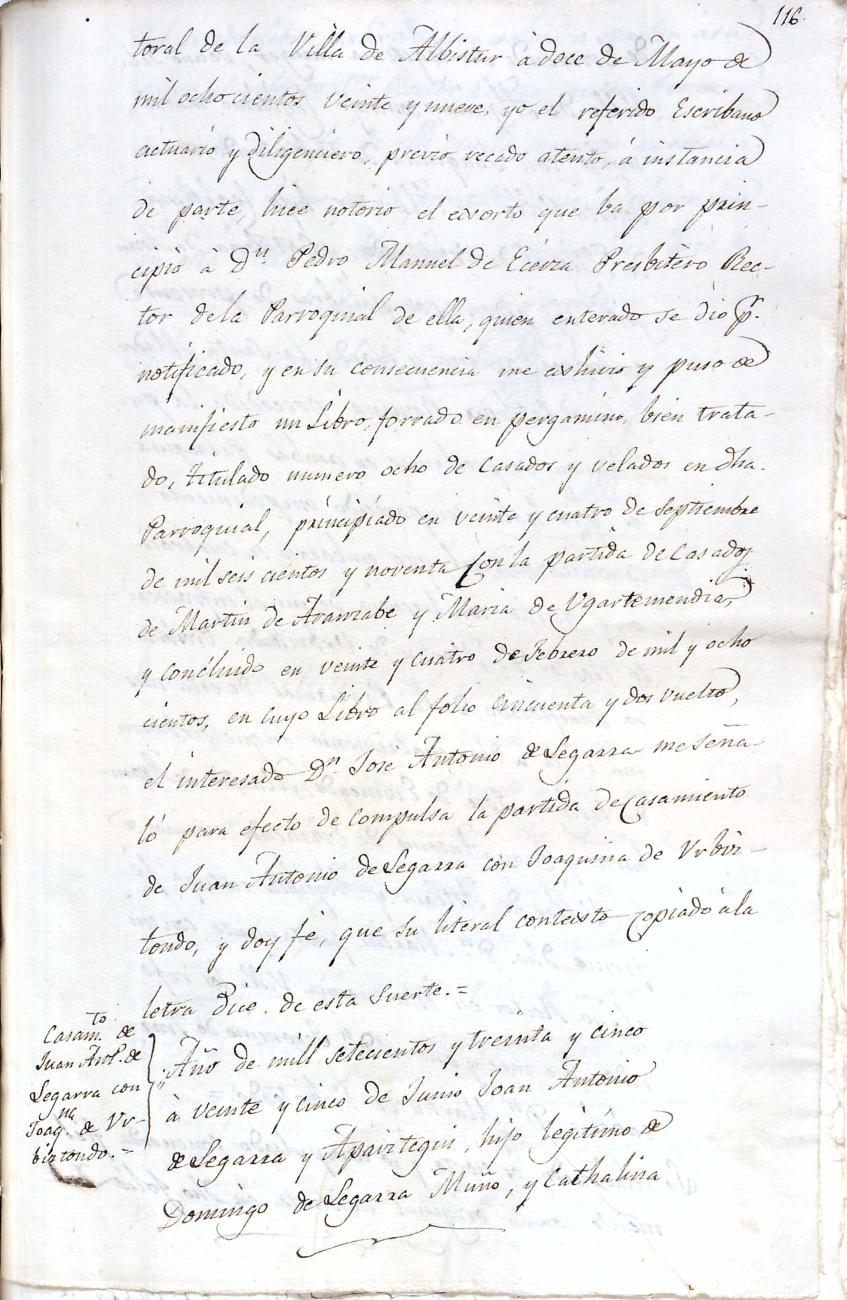 116.
toral de la Villa de Albistur à doce de Mayo de
mil ochocientos veinte y nueve, yo el referido Escribano
actuario y diligenciero, previo recado atento, á instancia
de parte, hice notorio el exorto que ba por prin-
cipio à Dn Pedro Manuel de Eceiza Presbitero Rec-
tor dela Parroquial de ella, quien enterado se dio pr.
notificado, y en su consecuencia me exhivio y puso de
manifiesto un Libro, forrado en pergamino, bien trata-
do, titulado numero ocho de Casados y velados en dha.
Parroquial, principiado en veinte y cuatro de septiembre
de mil seis cientos y noventa con la partida de Casados
de Martin de Aranzabe y Maria de Ugartemendia,
y concluido en veinte y cuatro de Febrero de mil y ocho
cientos, en cuyo Libro al folio cincuenta y dos vuelto,
el interesado Dn Jose Antonio de Legarra me seña-
ló para efecto de compulsa la partida de casamiento
de Juan Antonio de Legarra con Joaquina de Urbiz-
tondo, y doy fé, que su literal contexto copiado á la
letra dice de esta suerte.=
Casamto. de
Juan Anto. de
Legarra con
Joaqna. de Ur-
biztondo.=
Año de mill setecientos y treinta y cinco
à veinte y cinco de Junio Joan Antonio
de Legarra y Apaiztegui, hijo legitimo de
Domingo de Legarra Muño, y Cathalina